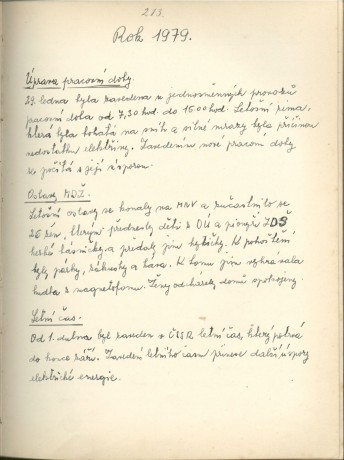 213.
Rok 1979.
Úprava pracovní doby.
29. ledna byla zavedena u jednosměnných provozů
pracovní doba od 7,30 hod. do 16.00 hod. Letošní zima,
která byla bohatá na sníh a silné mrazy byla příčinou
nedostatku elektřiny. Zavedením nové pracov. doby
se počítá s její úsporou.
Oslavy MDŽ.
Letošní oslavy se konaly na MNV a zúčastnilo se
26 žen, kterým přednesly děti z OU a pionýři ZDŠ
hezké básničky a předaly jim kytičky. K pohoštění
byly párky, zákusky a káva. K tomu jim vyhrávala
hudba z magnetofonu. Ženy odcházely domů spokojeny.
Letní čas.
Od 1. dubna byl zaveden v ČSSR letní čas, který potrvá
do konce září. Zavedení letního času přinese další úspory
elektrické energie.